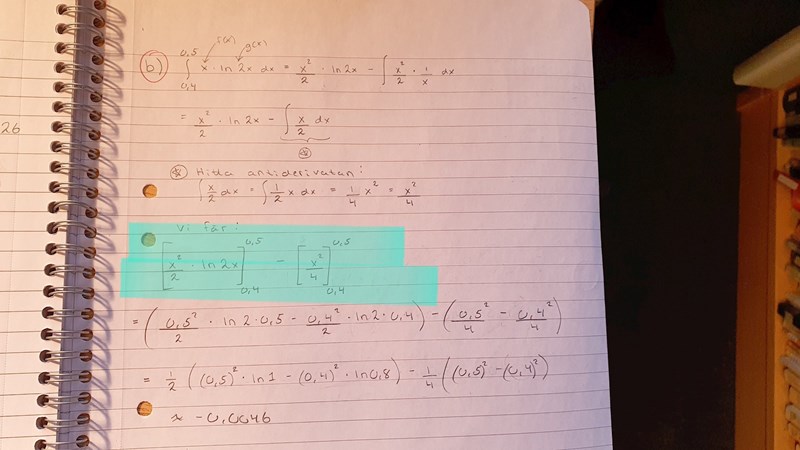 f(x) g(x)
b) ∫_{0,4}^{0,5} x · ln 2x dx = x²/2 · ln 2x - ∫ x²/2 · 1/x dx
= x²/2 · ln 2x - ∫ x/2 dx
⊛
26
⊛ Hitta antiderivatan:
∫ x/2 dx = ∫ 1/2 x dx = 1/4 x² = x²/4
Vi får:
[x²/2 · ln 2x]_{0,4}^{0,5} - [x²/4]_{0,4}^{0,5}
= (0,5²/2 · ln 2·0,5 - 0,4²/2 · ln 2·0,4) - (0,5²/4 - 0,4²/4)
= 1/2 ((0,5)² · ln 1 - (0,4)² · ln 0,8) - 1/4 ((0,5)² - (0,4)²)
≈ -0,0046